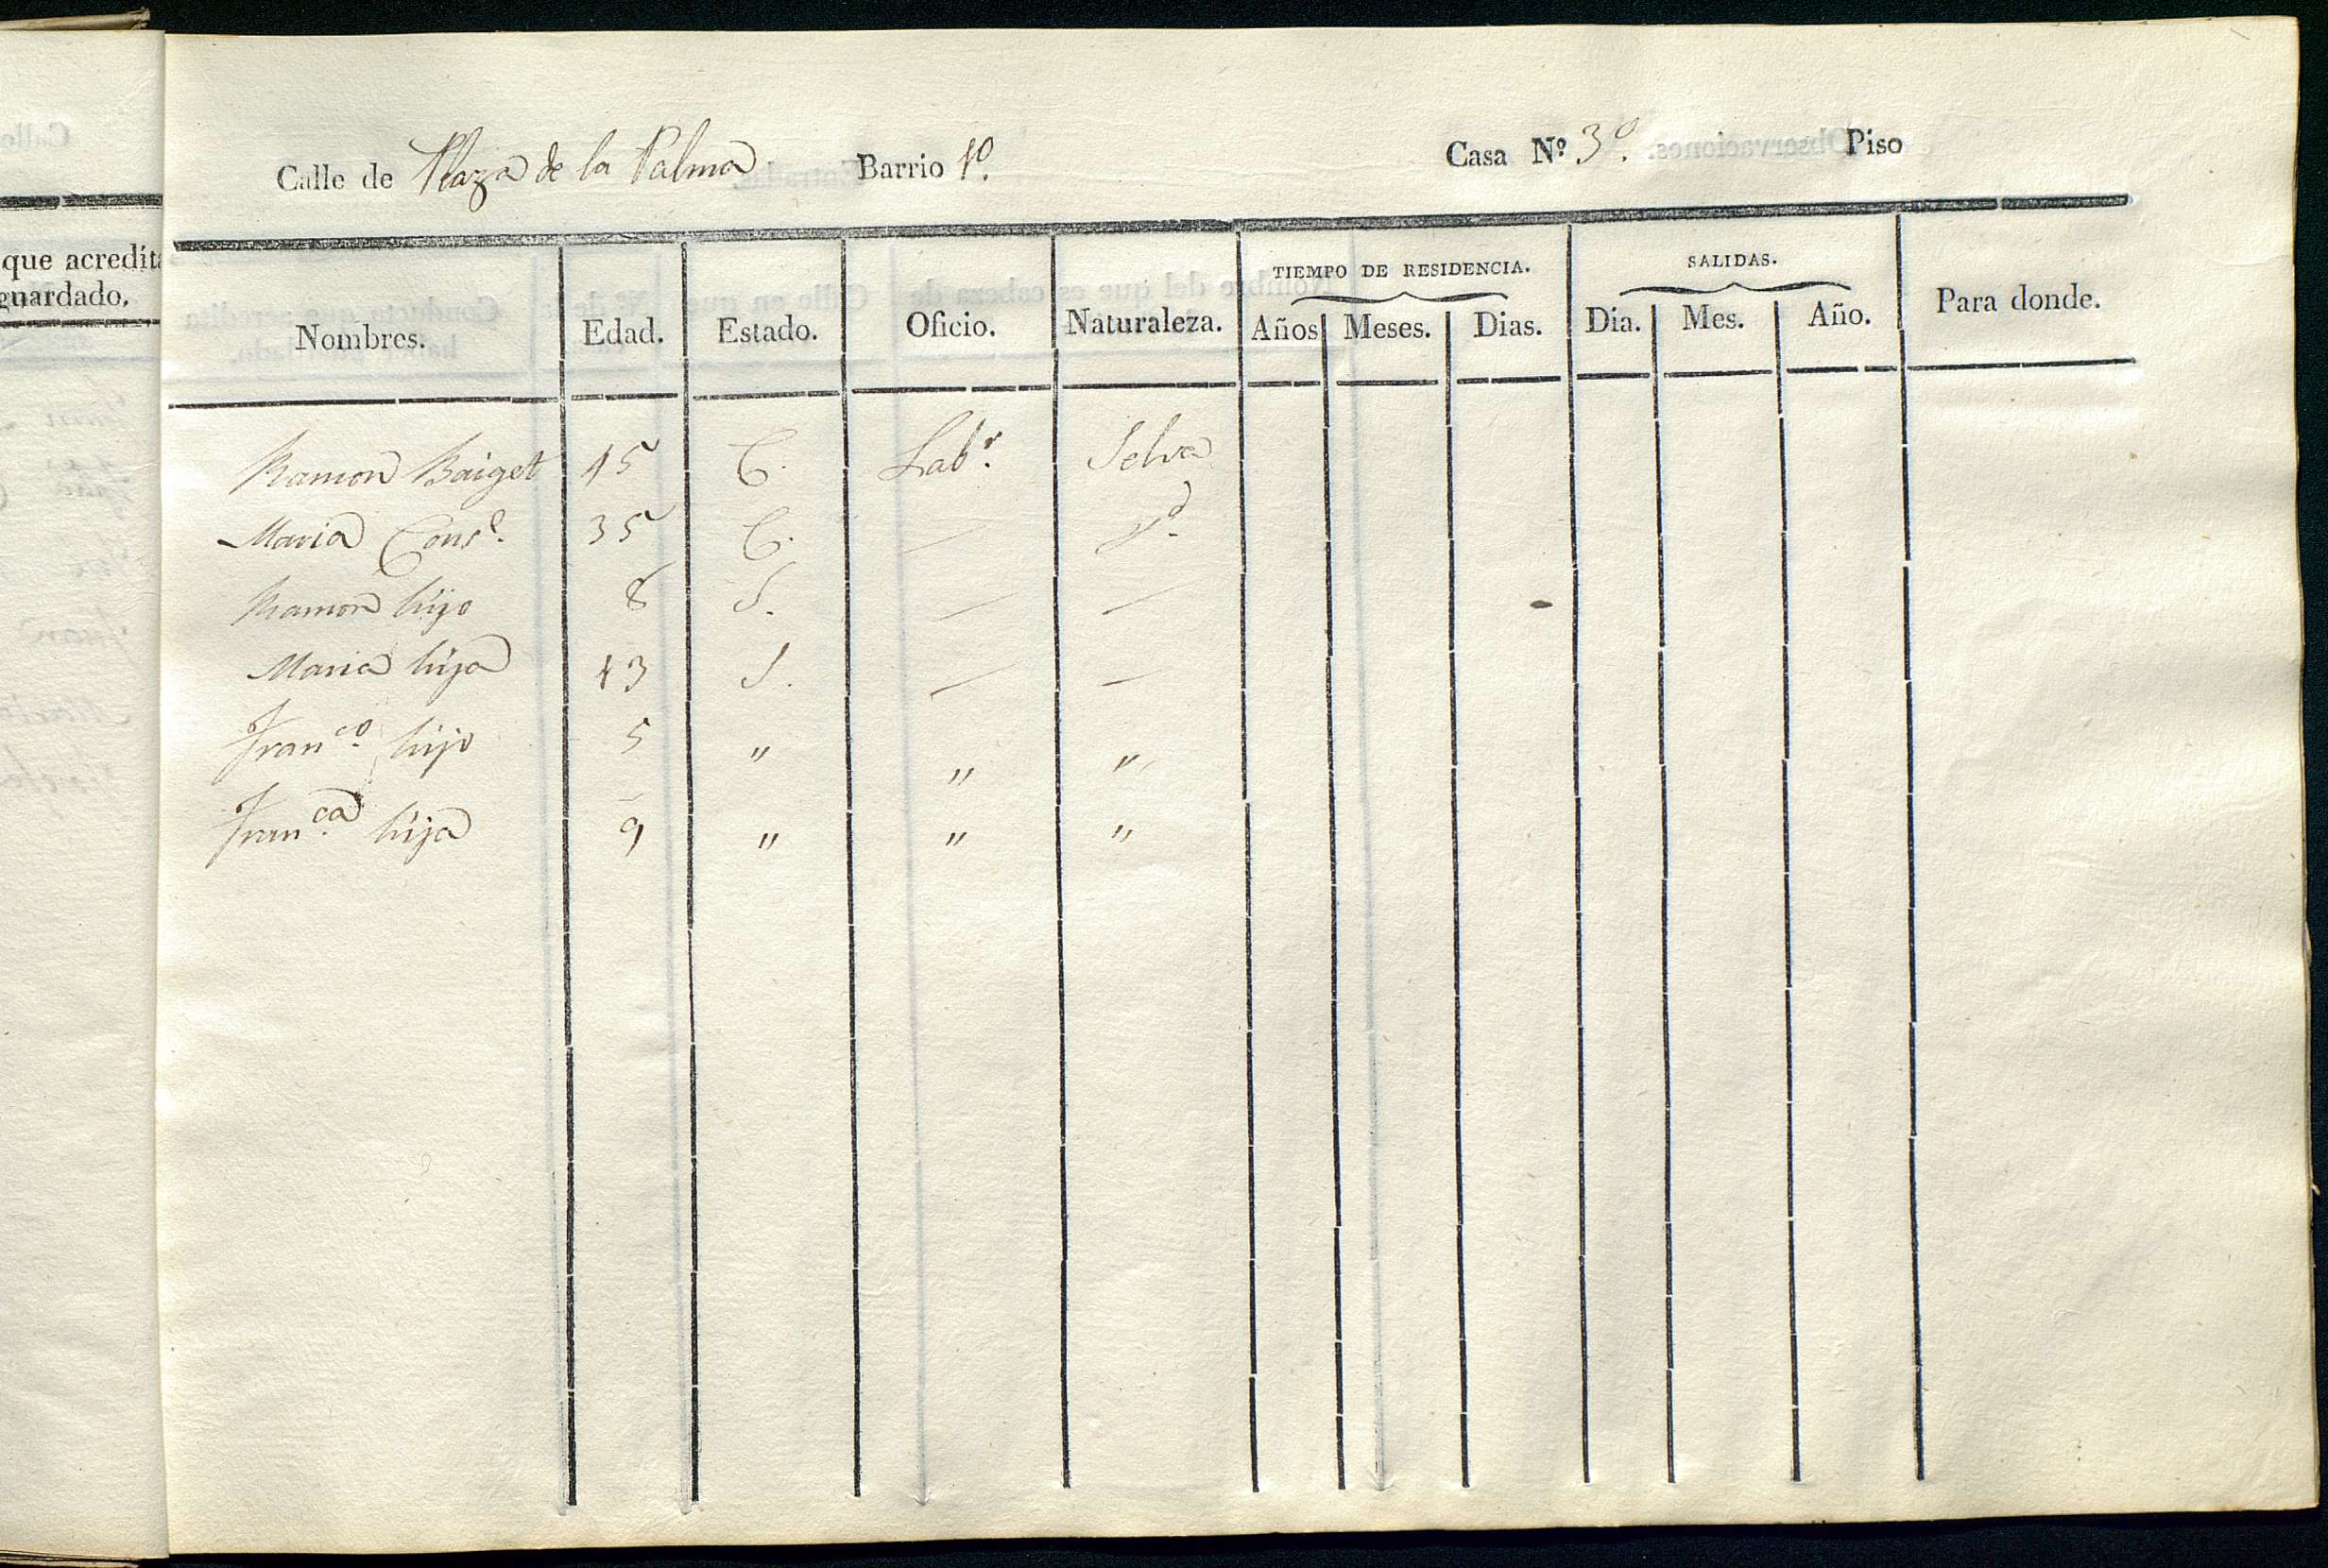 Calle de Plaza de la Palma Barrio 1º. Casa Nº 3º. Piso
que acredita
guardado.
TIEMPO DE RESIDENCIA. SALIDAS.
Nombres. Edad. Estado. Oficio. Naturaleza. Años Meses. Dias. Dia. Mes. Año. Para donde.
Ramon Baiget 45 C. Labr. Selva
Maria Cons. 35 C. — Yd.
Ramon hijo 8 S. — —
Maria hija 13 S. — —
Franco. hijo 5 " " "
Franca. hija 9 " " "